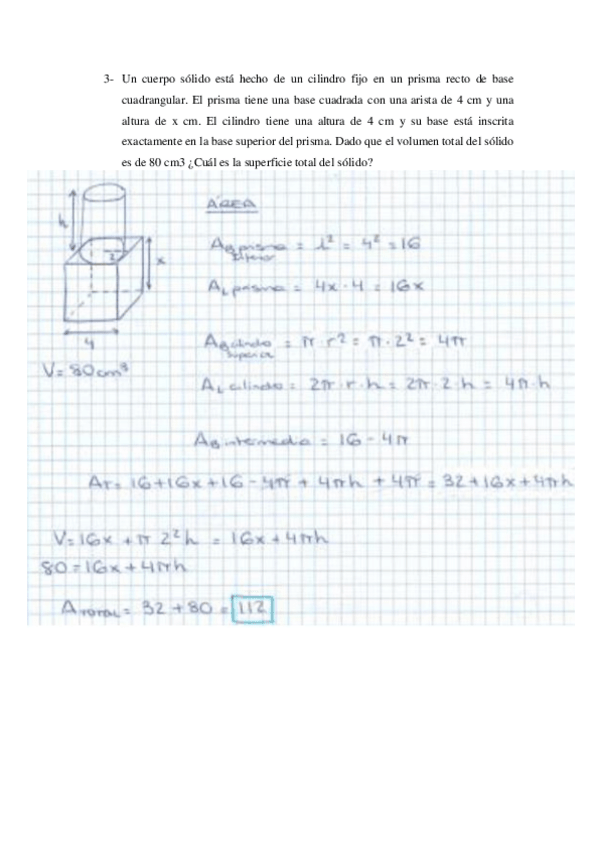 3- Un cuerpo sólido está hecho de un cilindro fijo en un prisma recto de base
cuadrangular. El prisma tiene una base cuadrada con una arista de 4 cm y una
altura de x cm. El cilindro tiene una altura de 4 cm y su base está inscrita
exactamente en la base superior del prisma. Dado que el volumen total del sólido
es de 80 cm3 ¿Cuál es la superficie total del sólido?
h
2
x
4
V= 80cm³
ÁREA
AB prisma inferior = l² = 4² = 16
AL prisma = 4x · 4 = 16x
AB cilindro superior = π · r² = π · 2² = 4π
AL cilindro = 2π · r · h = 2π · 2 · h = 4π · h
AB intermedia = 16 - 4π
AT = 16+16x+16-4π+4πh+4π = 32+16x+4πh
V=16x + π 2² h = 16x+4πh
80=16x+4πh
A TOTAL = 32 + 80 = 112